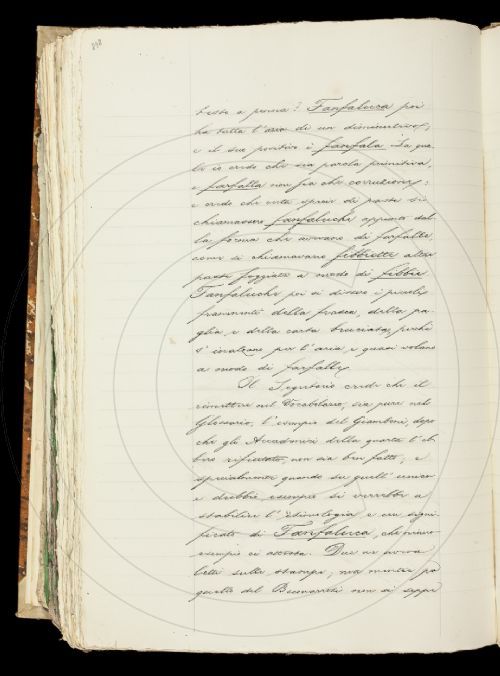 898
teste a penna? Fanfaluca poi
ha tutta l'aria di un diminutivo;
e il suo positivo è fanfala: la qua-
le io credo che sia parola primitiva,
e farfalla non sia che corruzione:
e credo che certe specie di paste si
chiamassero fanfaluche appunto dal-
la forma che avevano di farfalle,
come si chiamavano fibbiette altre
paste foggiate a modo di fibbie.
Fanfaluche poi si dissero i piccoli
frammenti della frasca, della pa-
glia, e della carta bruciata, perchè
s'inalzano per l'aria, e quasi volano
a modo di farfalle.
Il Segretario crede che il
rimettere nel Vocabolario, sia pure nel
Glossario, l'esempio del Giamboni, dopo
che gli Accademici della quarta l'eb-
bero rifiutato, non sia ben fatto; e
specialmente quando su quell'unico
e dubbio esempio si vorrebbe
stabilire l'etimologia e un signi-
ficato di Fanfaluca, che niuno
esempio ci accerta. Due ne aveva
letti sulle stampe; ma mentre po
quello del Buonarroti non si seppe